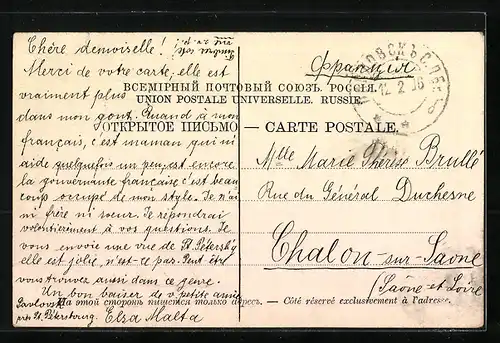 Chère demoiselle!
Merci de votre carte, elle est
vraiment plus
dans mon gout. Quand à mon
français, c'est maman qui m'
aide quelquefois un peu, est encore
la gouvernante française c'est beau
coup occupé de mon style. Je n'ai
ni frère ni soeur. Je répondrai
volontièrement à vos questions. Je
vous envoie une vue de St Petersbg
elle est jolie, n'est ce pas. Peut être
vous trouvez aussi dans ce genre.
Un bon baiser de v. petite amie
Pavlovsk
près St. Petersbourg. Elsa Malta
Франція
ПАВЛОВСКЪ С.ПЕТ
12 2 06
ВСЕМІРНЫЙ ПОЧТОВЫЙ СОЮЗЪ. РОССІЯ.
UNION POSTALE UNIVERSELLE. RUSSIE.
ОТКРЫТОЕ ПИСЬМО — CARTE POSTALE
Mlle Marie Thérèse Brullé
Rue du Général Duchesne
Chalon-sur-Saône
(Saône et Loire
На этой сторонѣ пишется только адресъ. — Côté réservé exclusivement à l'adresse.